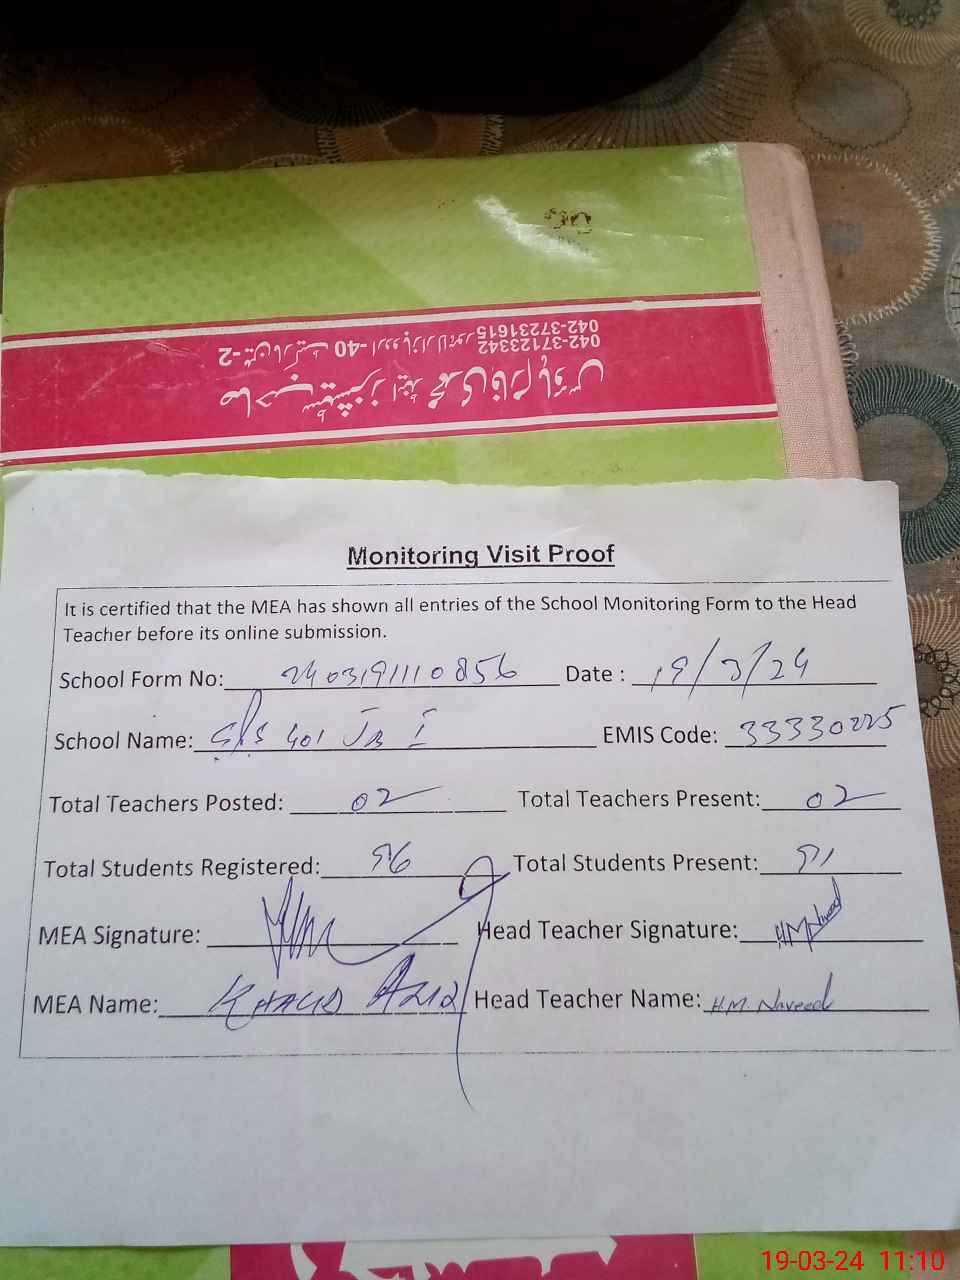 صاحب پبلشرز اینڈ محمدی فارم ہاؤس
2- 40- اردو بازار لاہور 042-37123342
042-37231615
Monitoring Visit Proof
It is certified that the MEA has shown all entries of the School Monitoring Form to the Head
Teacher before its online submission.
School Form No: 2403191110856 Date : 19/3/24
School Name: GPS 401 JB I EMIS Code: 33330225
Total Teachers Posted: 02 Total Teachers Present: 02
Total Students Registered: 96 Total Students Present: 91
MEA Signature: Head Teacher Signature: HMNaveed
MEA Name: KHALID AZIZ Head Teacher Name: H.M. Naveed
19-03-24 11:10